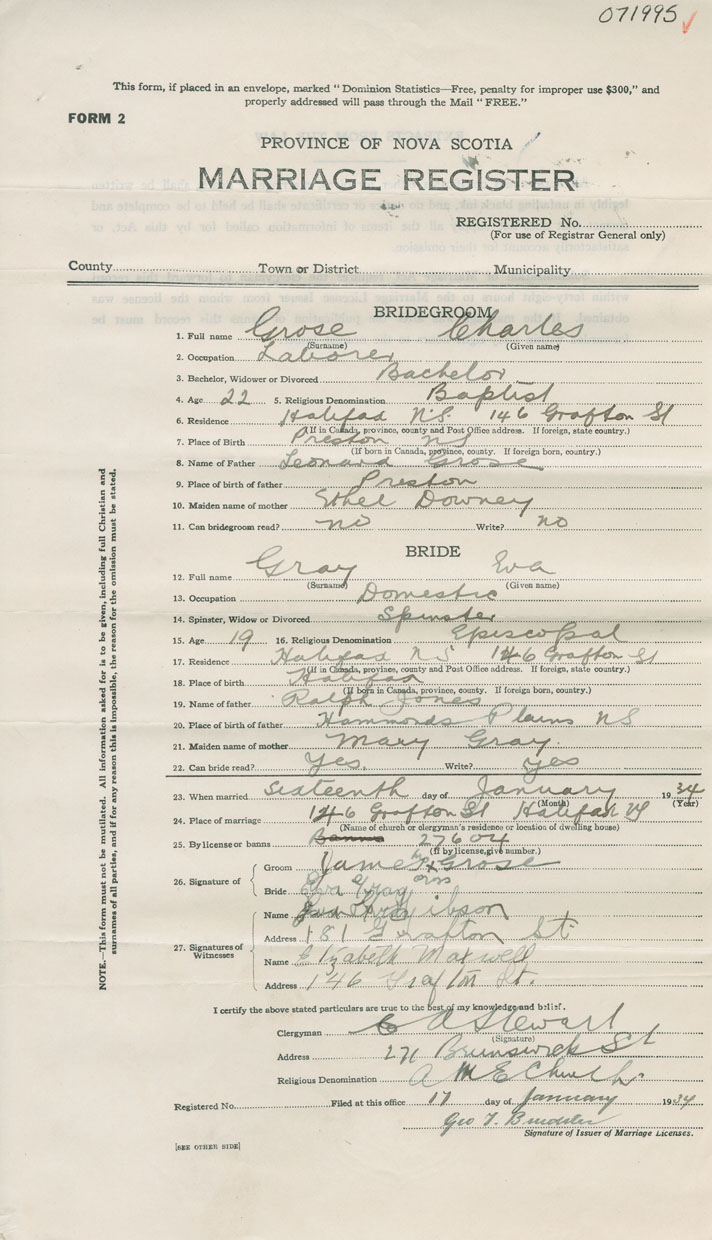 071995
This form, if placed in an envelope, marked "Dominion Statistics—Free, penalty for improper use $300," and
properly addressed will pass through the Mail "FREE."
FORM 2
PROVINCE OF NOVA SCOTIA
MARRIAGE REGISTER
REGISTERED No.
(For use of Registrar General only)
County Town or District Municipality
BRIDEGROOM
1. Full name Grose Charles
(Surname) (Given name)
2. Occupation Laborer
3. Bachelor, Widower or Divorced Bachelor
4. Age 22 5. Religious Denomination Baptist
6. Residence Halifax N.S. 146 Grafton St
(If in Canada, province, county and Post Office address. If foreign, state country.)
7. Place of Birth Preston NS
(If born in Canada, province, county. If foreign born, country.)
8. Name of Father Leonard Grose
9. Place of birth of father Preston
10. Maiden name of mother Ethel Downey
11. Can bridegroom read? no Write? no
BRIDE
12. Full name Gray Eva
(Surname) (Given name)
13. Occupation Domestic
14. Spinster, Widow or Divorced Spinster
15. Age 19 16. Religious Denomination Episcopal
17. Residence Halifax N S 146 Grafton St
(If in Canada, province, county and Post Office address. If foreign, state country.)
18. Place of birth Halifax
(If born in Canada, province, county. If foreign born, country.)
19. Name of father Ralph Jones
20. Place of birth of father Hammonds Plains NS
21. Maiden name of mother Mary Gray.
22. Can bride read? Yes. Write? yes
23. When married sixteenth day of January 1934
(Month) (Year)
24. Place of marriage 146 Grafton St Halifax
(Name of church or clergyman's residence or location of dwelling house)
25. By license or banns Banns 27604
(If by license, give number.)
26. Signature of Groom James X Grose
Bride Eva Gray
27. Signatures of Witnesses
Name Gibson
Address 181 Grafton St
Name Elizabeth Maxwell
Address 146 Grafton St.
I certify the above stated particulars are true to the best of my knowledge and belief.
Clergyman A Stewart
(Signature)
Address 271 Brunswick St
Religious Denomination A M E Church
Registered No. Filed at this office 17 day of January 1934
Geo T.
Signature of Issuer of Marriage Licenses.
[SEE OTHER SIDE]
NOTE.—This form must not be mutilated. All information asked for is to be given, including full Christian and
surnames of all parties, and if for any reason this is impossible, the reason for the omission must be stated.